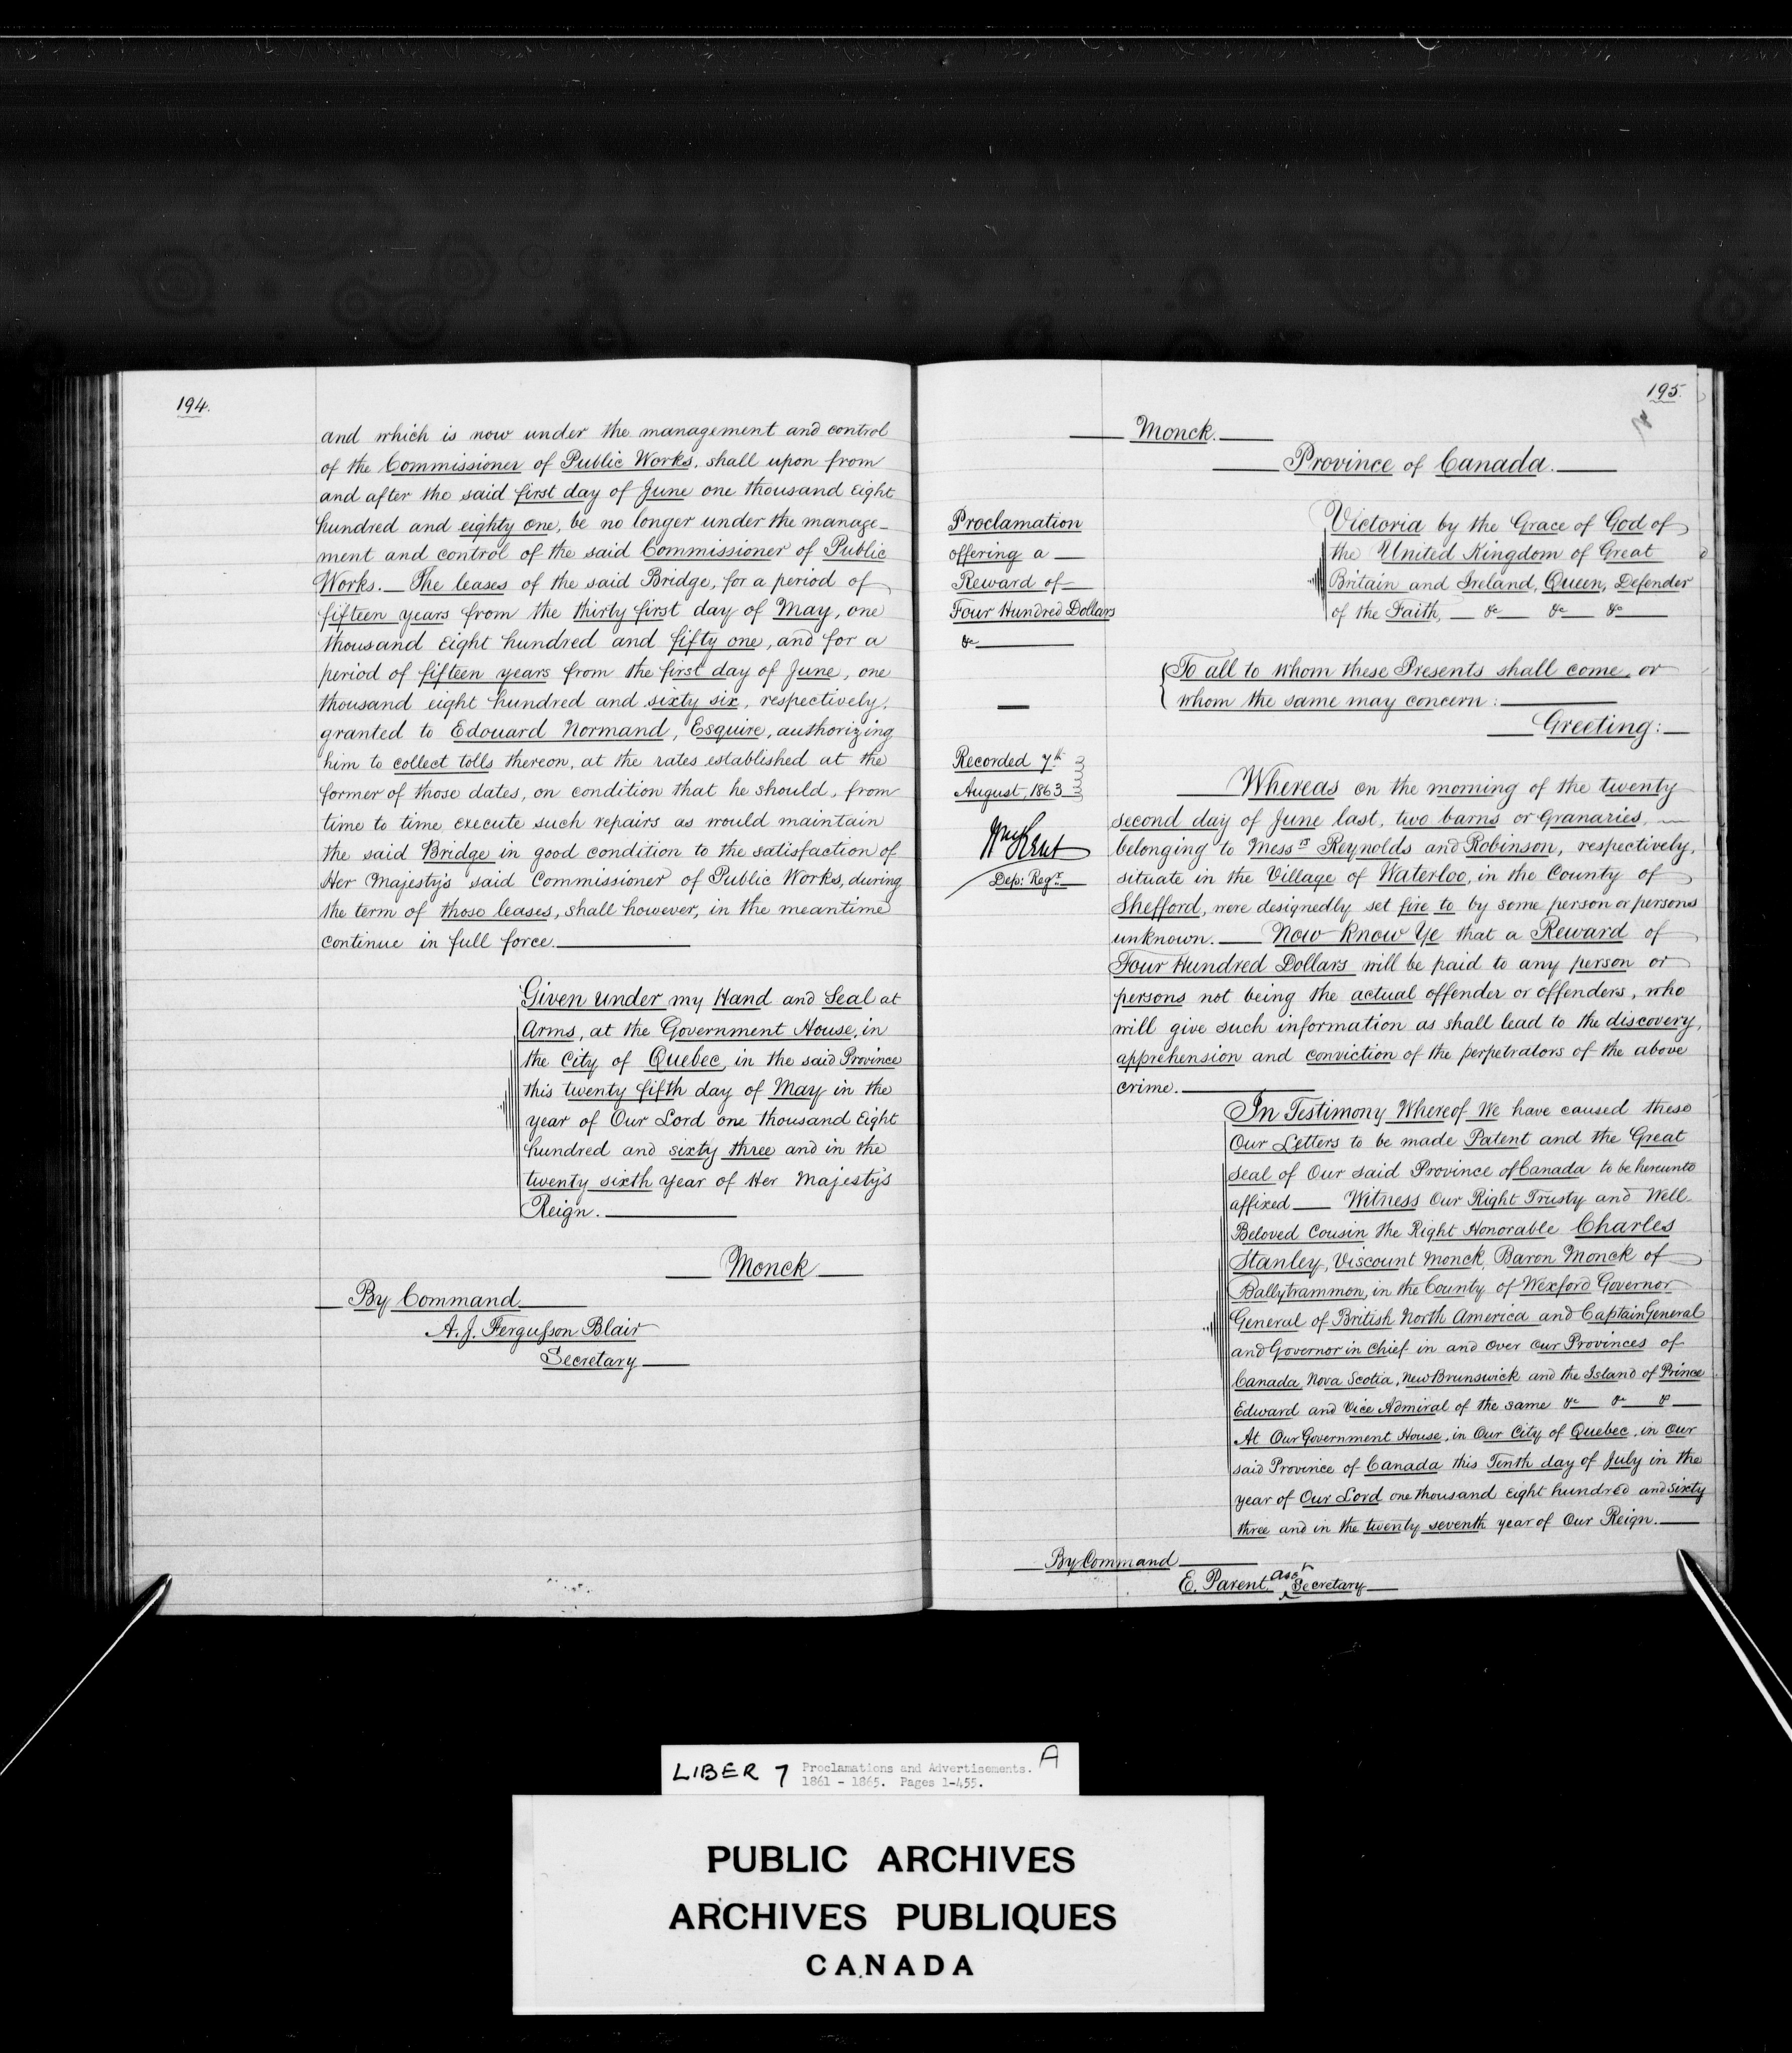 194.
and which is now under the management and control
of the Commissioner of Public Works, shall upon from
and after the said first day of June one thousand Eight
hundred and eighty one, be no longer under the manage-
ment and control of the said Commissioner of Public
Works. — The leases of the said Bridge, for a period of
fifteen years from the thirty first day of May, one
thousand Eight hundred and fifty one, and for a
period of fifteen years from the first day of June, one
thousand eight hundred and sixty six, respectively,
granted to Edouard Normand, Esquire, authorizing
him to collect tolls thereon, at the rates established at the
former of those dates, on condition that he should, from
time to time execute such repairs as would maintain
the said Bridge in good condition to the satisfaction of
Her Majesty's said Commissioner of Public Works, during
the term of those leases, shall however, in the meantime
continue in full force.
Given under my Hand and Seal at
Arms, at the Government House, in
the City of Quebec, in the said Province
this twenty fifth day of May in the
year of Our Lord one thousand Eight
hundred and sixty three and in the
twenty sixth year of Her Majesty's
Reign.
Monck
By Command
A. J. Fergusson Blair
Secretary
195.
Monck.
Province of Canada.
Proclamation
offering a
Reward of
Four Hundred Dollars
&c
Recorded 7th
August, 1863
Wm Kent
Dep: Regr
Victoria by the Grace of God of
the United Kingdom of Great
Britain and Ireland, Queen, Defender
of the Faith, — &c — &c — &c
To all to whom these Presents shall come, or
whom the same may concern:
Greeting:
Whereas on the morning of the twenty
second day of June last, two barns or Granaries,
belonging to Messrs Reynolds and Robinson, respectively,
situate in the Village of Waterloo, in the County of
Shefford, were designedly set fire to by some person or persons
unknown. — Now Know Ye that a Reward of
Four Hundred Dollars will be paid to any person or
persons not being the actual offender or offenders, who
will give such information as shall lead to the discovery,
apprehension and conviction of the perpetrators of the above
crime.
In Testimony Whereof We have caused these
Our Letters to be made Patent and the Great
Seal of Our said Province of Canada to be hereunto
affixed — Witness Our Right Trusty and Well
Beloved Cousin the Right Honorable Charles
Stanley, Viscount Monck, Baron Monck of
Ballytrammon, in the County of Wexford Governor
General of British North America and Captain General
and Governor in Chief in and over our Provinces of
Canada, Nova Scotia, New Brunswick and the Island of Prince
Edward and Vice Admiral of the same &c — &c — &
At Our Government House, in Our City of Quebec, in Our
said Province of Canada this Tenth day of July in the
year of Our Lord one thousand Eight hundred and sixty
three and in the twenty seventh year of Our Reign.
By Command
E. Parent Asst Secretary
LIBER 7 Proclamations and Advertisements. A
1861 - 1865. Pages 1-455.
PUBLIC ARCHIVES
ARCHIVES PUBLIQUES
CANADA